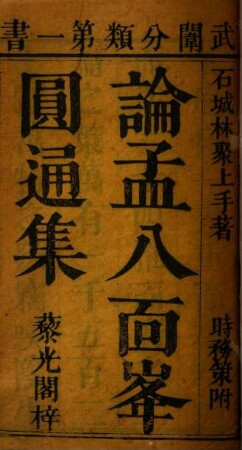 武闈分類第一書
石城林聚上手著
時務策附
論孟八面峯
圓通集
藜光閣梓